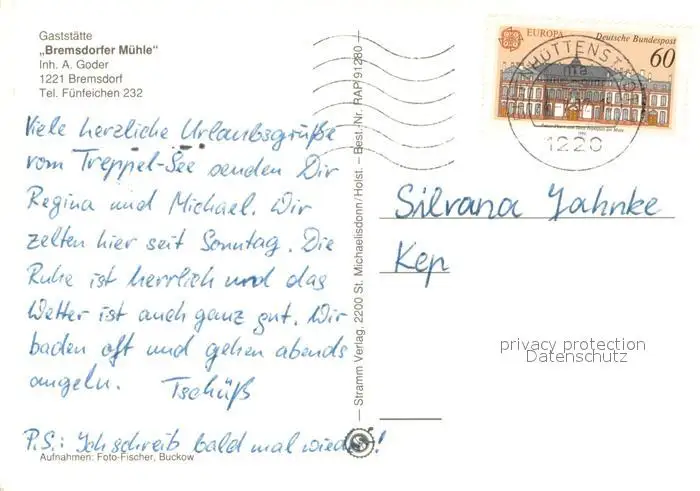 Gaststätte
„Bremsdorfer Mühle"
Inh. A. Goder
1221 Bremsdorf
Tel. Fünfeichen 232
Viele herzliche Urlaubsgrüße
vom Treppel-See senden Dir
Regina und Michael. Wir
zelten hier seit Sonntag. Die
Ruhe ist herrlich und das
Wetter ist auch ganz gut. Wir
baden oft und gehen abends
angeln. Tschüß
P.S.: Ich schreib bald mal wieder!
Aufnahmen: Foto-Fischer, Buckow
Stramm Verlag, 2200 St. Michaelisdonn/Holst. – Best.-Nr. RAP 91280
EUROPA Deutsche Bundespost
60
1220
Silvana Jahnke
Kep
privacy protection
Datenschutz